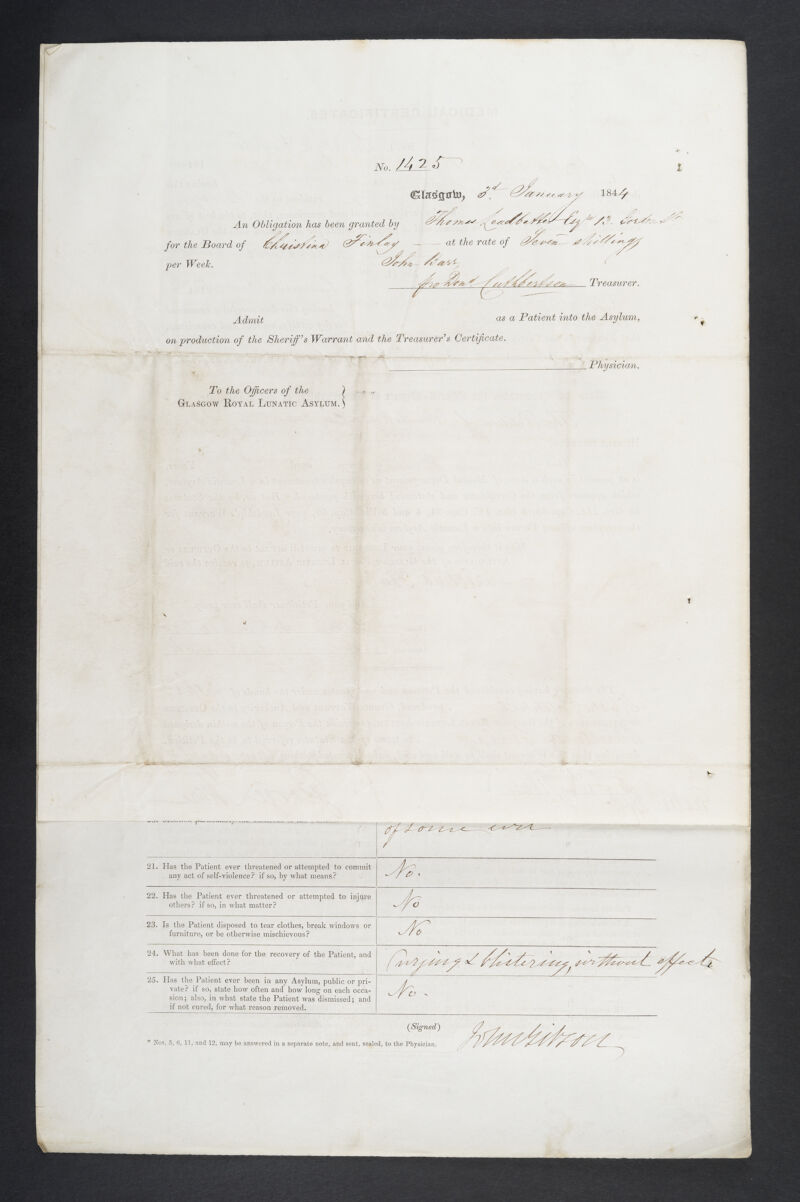 No. 1425
Glasgow, 3d January 1844
An Obligation has been granted by Thomas Leadbetter Esqr 13 St
for the Board of Christina Finlay — at the rate of Seven shillings
per Week. John Karr
pro Cuthbertson Treasurer.
Admit as a Patient into the Asylum,
on production of the Sheriff's Warrant and the Treasurer's Certificate.
Physician.
To the Officers of the
Glasgow Royal Lunatic Asylum.
of some
21. Has the Patient ever threatened or attempted to commit
any act of self-violence? if so, by what means? No.
22. Has the Patient ever threatened or attempted to injure
others? if so, in what matter? No
23. Is the Patient disposed to tear clothes, break windows or
furniture, or be otherwise mischievous? No
24. What has been done for the recovery of the Patient, and
with what effect? Purging & blistering, without effect.
25. Has the Patient ever been in any Asylum, public or pri-
vate? if so, state how often and how long on each occa-
sion; also, in what state the Patient was dismissed; and
if not cured, for what reason removed. No.
(Signed) John Gibson
* Nos. 5, 6, 11, and 12, may be answered in a separate note, and sent, sealed, to the Physician.